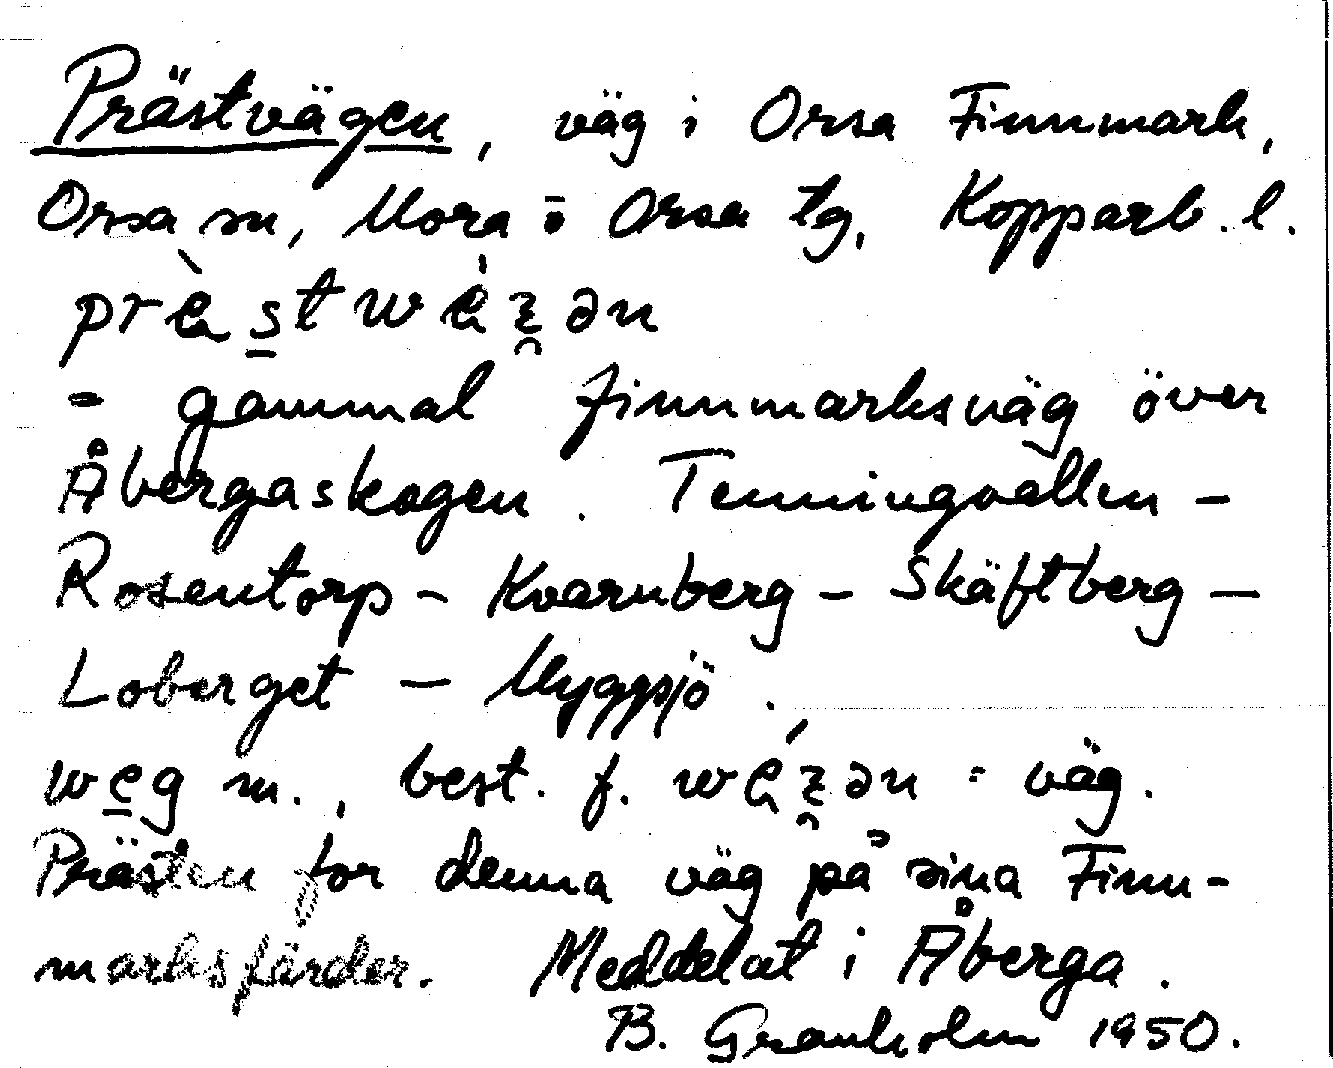 Prästvägen, väg i Orsa Finnmark,
Orsa sn, Mora o Orsa tg, Kopparb. l.
= gammal finnmarksväg över
Åbergaskogen. Tenningvallen –
Rosentorp – Kvarnberg – Skäftberg –
Loberget – Myggsjö.
weg m., best. f. = väg.
Prästen for denna väg på sina Finn-
marksfärder. Meddelat i Åberga.
B. Granholm 1950.